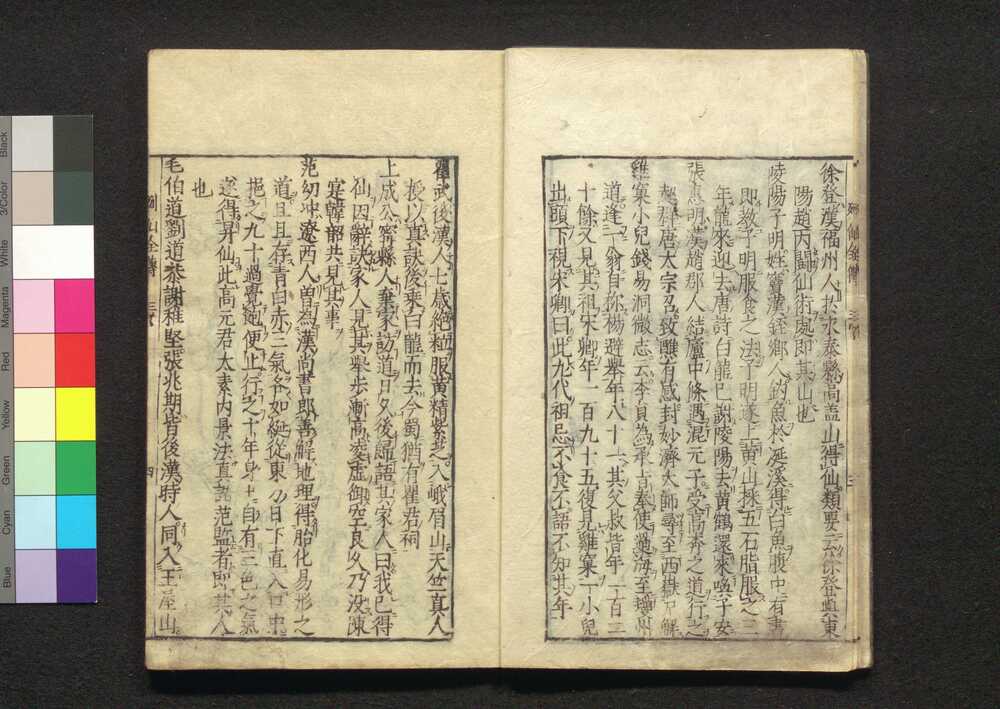 徐登漢福州人於永泰縣高蓋山得仙類要云徐登與東
陽趙丙鬪仙術處即其山也
陵陽子明姓竇漢銍鄉人釣魚於涎溪得白魚腹中有書
即教子明服食之法子明遂上黄山採五石脂服之三
年龍來迎去唐詩白龍已謝陵陽去黄鶴還來喚子安
張惠明漢趙郡人結廬中條遇混元子受高奔之道行之
輕舉唐太宗召致醮有感封妙濟大師尋至西嶽尸解
雞窠小兒錢易洞微志云李員為承旨奉使過海至瓊州
道逢一翁自称楊遐舉年八十一其父叔皆年一百二
十餘又見其祖宋卿年一百九十五復見雞窠一小兒
出頭下視宋卿曰此九代祖忌不食不語不知其年
瞿武後漢人七歳絶粒服黄精紫芝入峨眉山天竺真人
授以真訣後乗白龍而去今蜀猶有瞿君祠
上成公密縣人棄家訪道日久後歸語其家人曰我已得
仙因辭訣家人見其舉歩漸高凌虚御空良久乃没陳
寔韓韶共見其事
范幼冲遼西人曽為漢尚書郎善解地理得胎化易形之
道且且存青白赤三氣各如綖從東方日下直入口中
挹之九十過覺飽便止行之十年身中自有三色之氣
遂得昇仙此高元君太素内景法真誥范監者即其人
也
毛伯道劉道恭謝稚堅張兆期皆後漢時人同入王屋山
Black
3/Color
White
Magenta
Red
Yellow
Green
Cyan
Blue